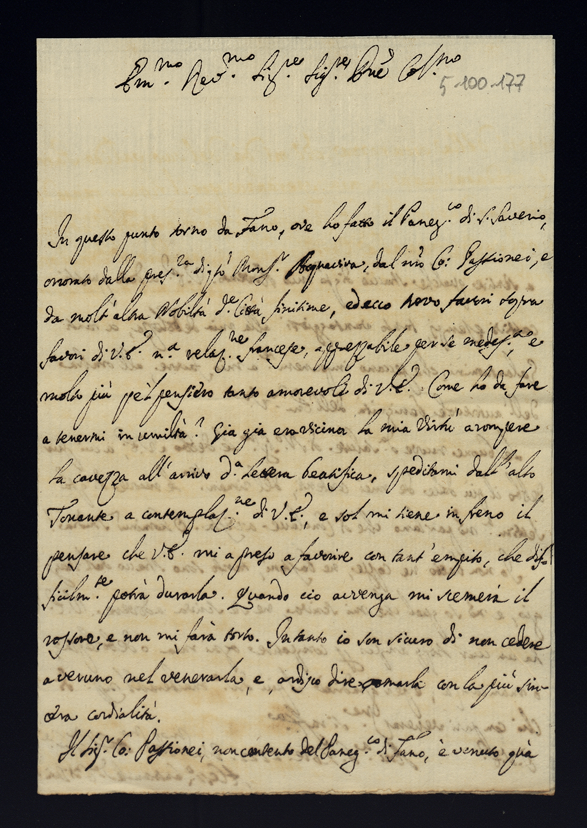 Em.mo Rev.mo Sig.re Sig.re Pne Col.mo
5-100-177
In questo punto torno da Fano, ove ho fatto il Paneg.co di S. Saverio,
onorato dalla pres.za di Monsr. Acquaviva, dal Co: Passionei, e
da molt'altra Nobiltà de Città finitime, ed ecco trovo favori sopra
favori di V.E. relaz.ne francese, apprezzabile per se medes.ma e
molto più pel pensiero tanto amorevole di V.E. Come ho da fare
a tenermi in umiltà? Già già era vicina la mia Virtù a rompere
la cavezza all'arrivo d.a lettera beatifica, speditami dall'alto
Tonante a contemplaz.ne di V.E., e sol mi tiene in freno il
pensare che V.E. mi a preso a favorire con tant'empito, che dif-
ficilm.te potrà durarla. Quando ciò avvenga mi scemerà il
rossore, e non mi farà torto. Intanto io son sicuro di non cedere
a veruno nel venerarla, e, ardisco dire, amarla con la più sin-
cera cordialità.
Il Sig.r Co: Passionei, non contento del Paneg.co di Fano, è venuto quà